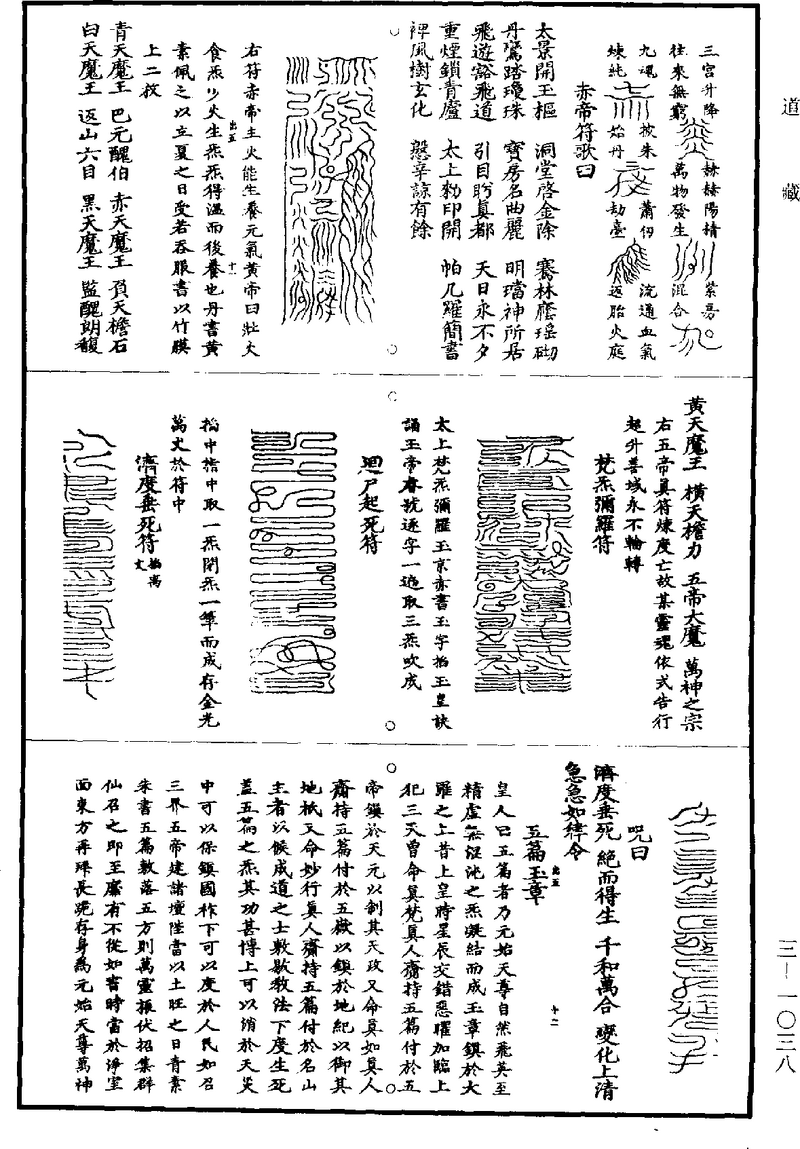 道藏
三宮升降 赫赫陽精 紫
往來無窮 萬物發生 混合
九魂 按朱 蕭 流通血氣
煉純 始丹 劫臺 返胎火庭
赤帝符歌曰
太景開玉樞 洞堂啓金除 騫林蔭瑤砌
丹鸞踏瓊珠 寶房名曲麗 明璫神所居
飛遊豁飛道 引目眄真都 天日永不夕
重煙鎖青廬 太上勑印開 帕几羅簡書
裡風樹玄化 慇辛諒有餘
右符赤帝主火能生養元氣黃帝曰壯火
食炁少火生炁炁得溫而後養也丹書黃
素佩之以立夏之日受若吞服書以竹膜
上二救
青天魔王 巴元醜伯 赤天魔王 負天檐石
白天魔王 返山六目 黑天魔王 監醜朗馥
出五 十二
黃天魔王 橫天檐力 五帝大魔 萬神之宗
右五帝真符煉度亡故某靈魂依式告行
超升善域永不輪轉
梵炁彌羅符
太上梵炁彌羅玉京赤書玉字掐玉皇訣
誦玉帝尊號逐字一遍取三炁吹成
迴尸起死符
掐中 中取一炁閉炁一筆而成存金光
萬丈於符中
濟度垂死符 掐高文
呪曰
濟度垂死 絕而得生 千和萬合 變化上清
急急如律令
五篇玉章
皇人曰五篇者乃元始天尊自然飛英至
精虛無混沌之炁凝結而成玉章鎮於大
羅之上昔上皇時星辰交錯惡曜加臨上
犯三天曾命真梵真人齎持五篇付於五
帝鎮於天元以制其天政又命真如真人
齎持五篇付於五嶽以鎮於地紀以御其
地祇又命妙行真人齎持五篇付於名山
主者以候成道之士敷歇教法下度生死
蓋五篇之炁其功甚博上可以消於天災
中可以保鎮國祚下可以度於人民如召
三界五帝建諸壇陛當以土旺之日青素
朱書五篇敷落五方則萬靈振伏招集群
仙召之即至靡有不從如書時當於淨室
面東方再拜長跪存身為元始天尊萬神
出五 十二
三—一〇三八